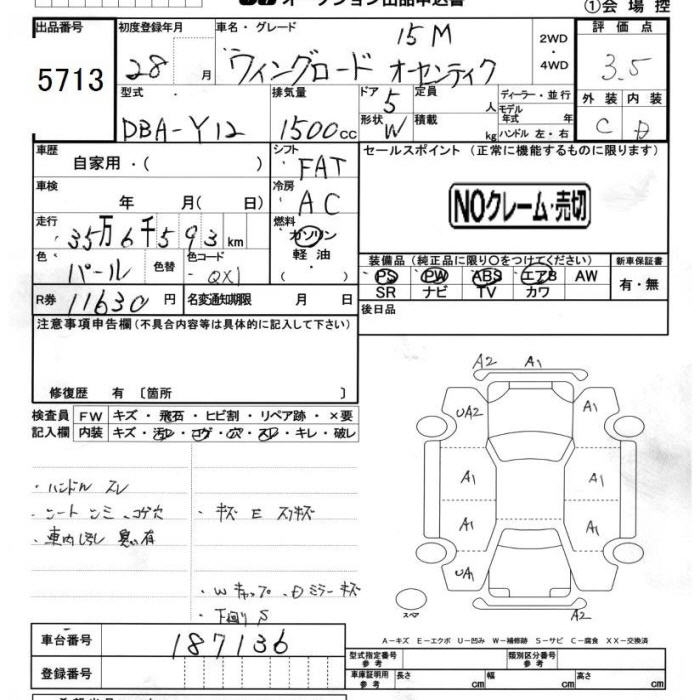 オークション出品申込書
①会場控
出品番号 初度登録年月 車名・グレード 15M 2WD・4WD 評価点
5713 28 月 ウィングロード オーセンティク 3.5
型式 排気量 ドア 5 定員 人 ディーラー・並行 外装 内装
DBA-Y12 1500cc 形状 W 積載 kg モデル年式 年 ハンドル 左・右 C D
車歴 自家用・( ) シフト FAT セールスポイント (正常に機能するものに限ります)
車検 年 月( 日) 冷房 AC NOクレーム・売切
走行 35万6千593km 燃料 ガソリン・軽油・( )
色 パール 色替 色コード QX1 装備品(純正品に限り〇をつけてください) 新車保証書
PS PW ABS エアB AW 有・無
SR ナビ TV カワ
R券 11630円 名変通知期限 月 日 後日品
注意事項申告欄(不具合内容等は具体的に記入して下さい)
修復歴 有 〔箇所 〕
検査員記入欄 FW キズ・飛石・ヒビ割・リペア跡・×要
内装 キズ・汚レ・コゲ・穴・スレ・キレ・破レ
・ハンドル スレ
・シート シミ・コゲ穴 ・キズ E スリキズ
・車内汚レ 臭い有
・Wキャップ・Dミラーキズ
・下廻りS
A2 A1
UA2 A1
A1 A1
A1 A1
UA1
スペア A2
A-キズ E-エクボ U-凹み W-補修跡 S-サビ C-腐食 XX-交換済
車台番号 187136
型式指定番号 参考 類別区分番号 参考
登録番号 車庫証明用 参考 長さ cm 幅 cm 高さ cm